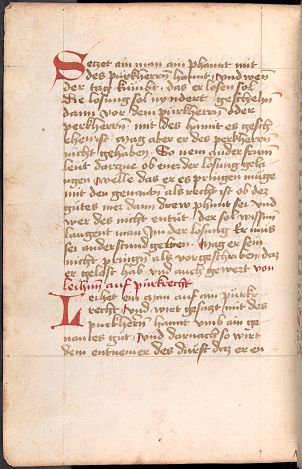 Setzet ain man am phannt mit
des purkherrn hannt und wen
der tag kumbt das er losen sol
die losung sol nyndert geschehn
dann vor dem purkherrn oder
perkherrn mit des hannt es gesch
ehen ist mag aber er des perkherrn
nicht gehaben So nem under seinn
leut darzue ob ener der losung
welle das er es pringen muge
mit den genanten als recht ist ob dez
gutes mer dann drew phunt sei und
wer des nicht entut der sol
laugent man Im der losung er mus
sei anderstund geben mag er sein
nicht pringen als vorgeschriben daz
er gelost hab und auch gewert von
leihnn auf purkrecht
Leihet ein man auf am purk
recht und wirt gesatzt mit des
purkherrn hannt umb ain ge
nantes gut und darnach so wirt
dem entnemer des durft daz er en